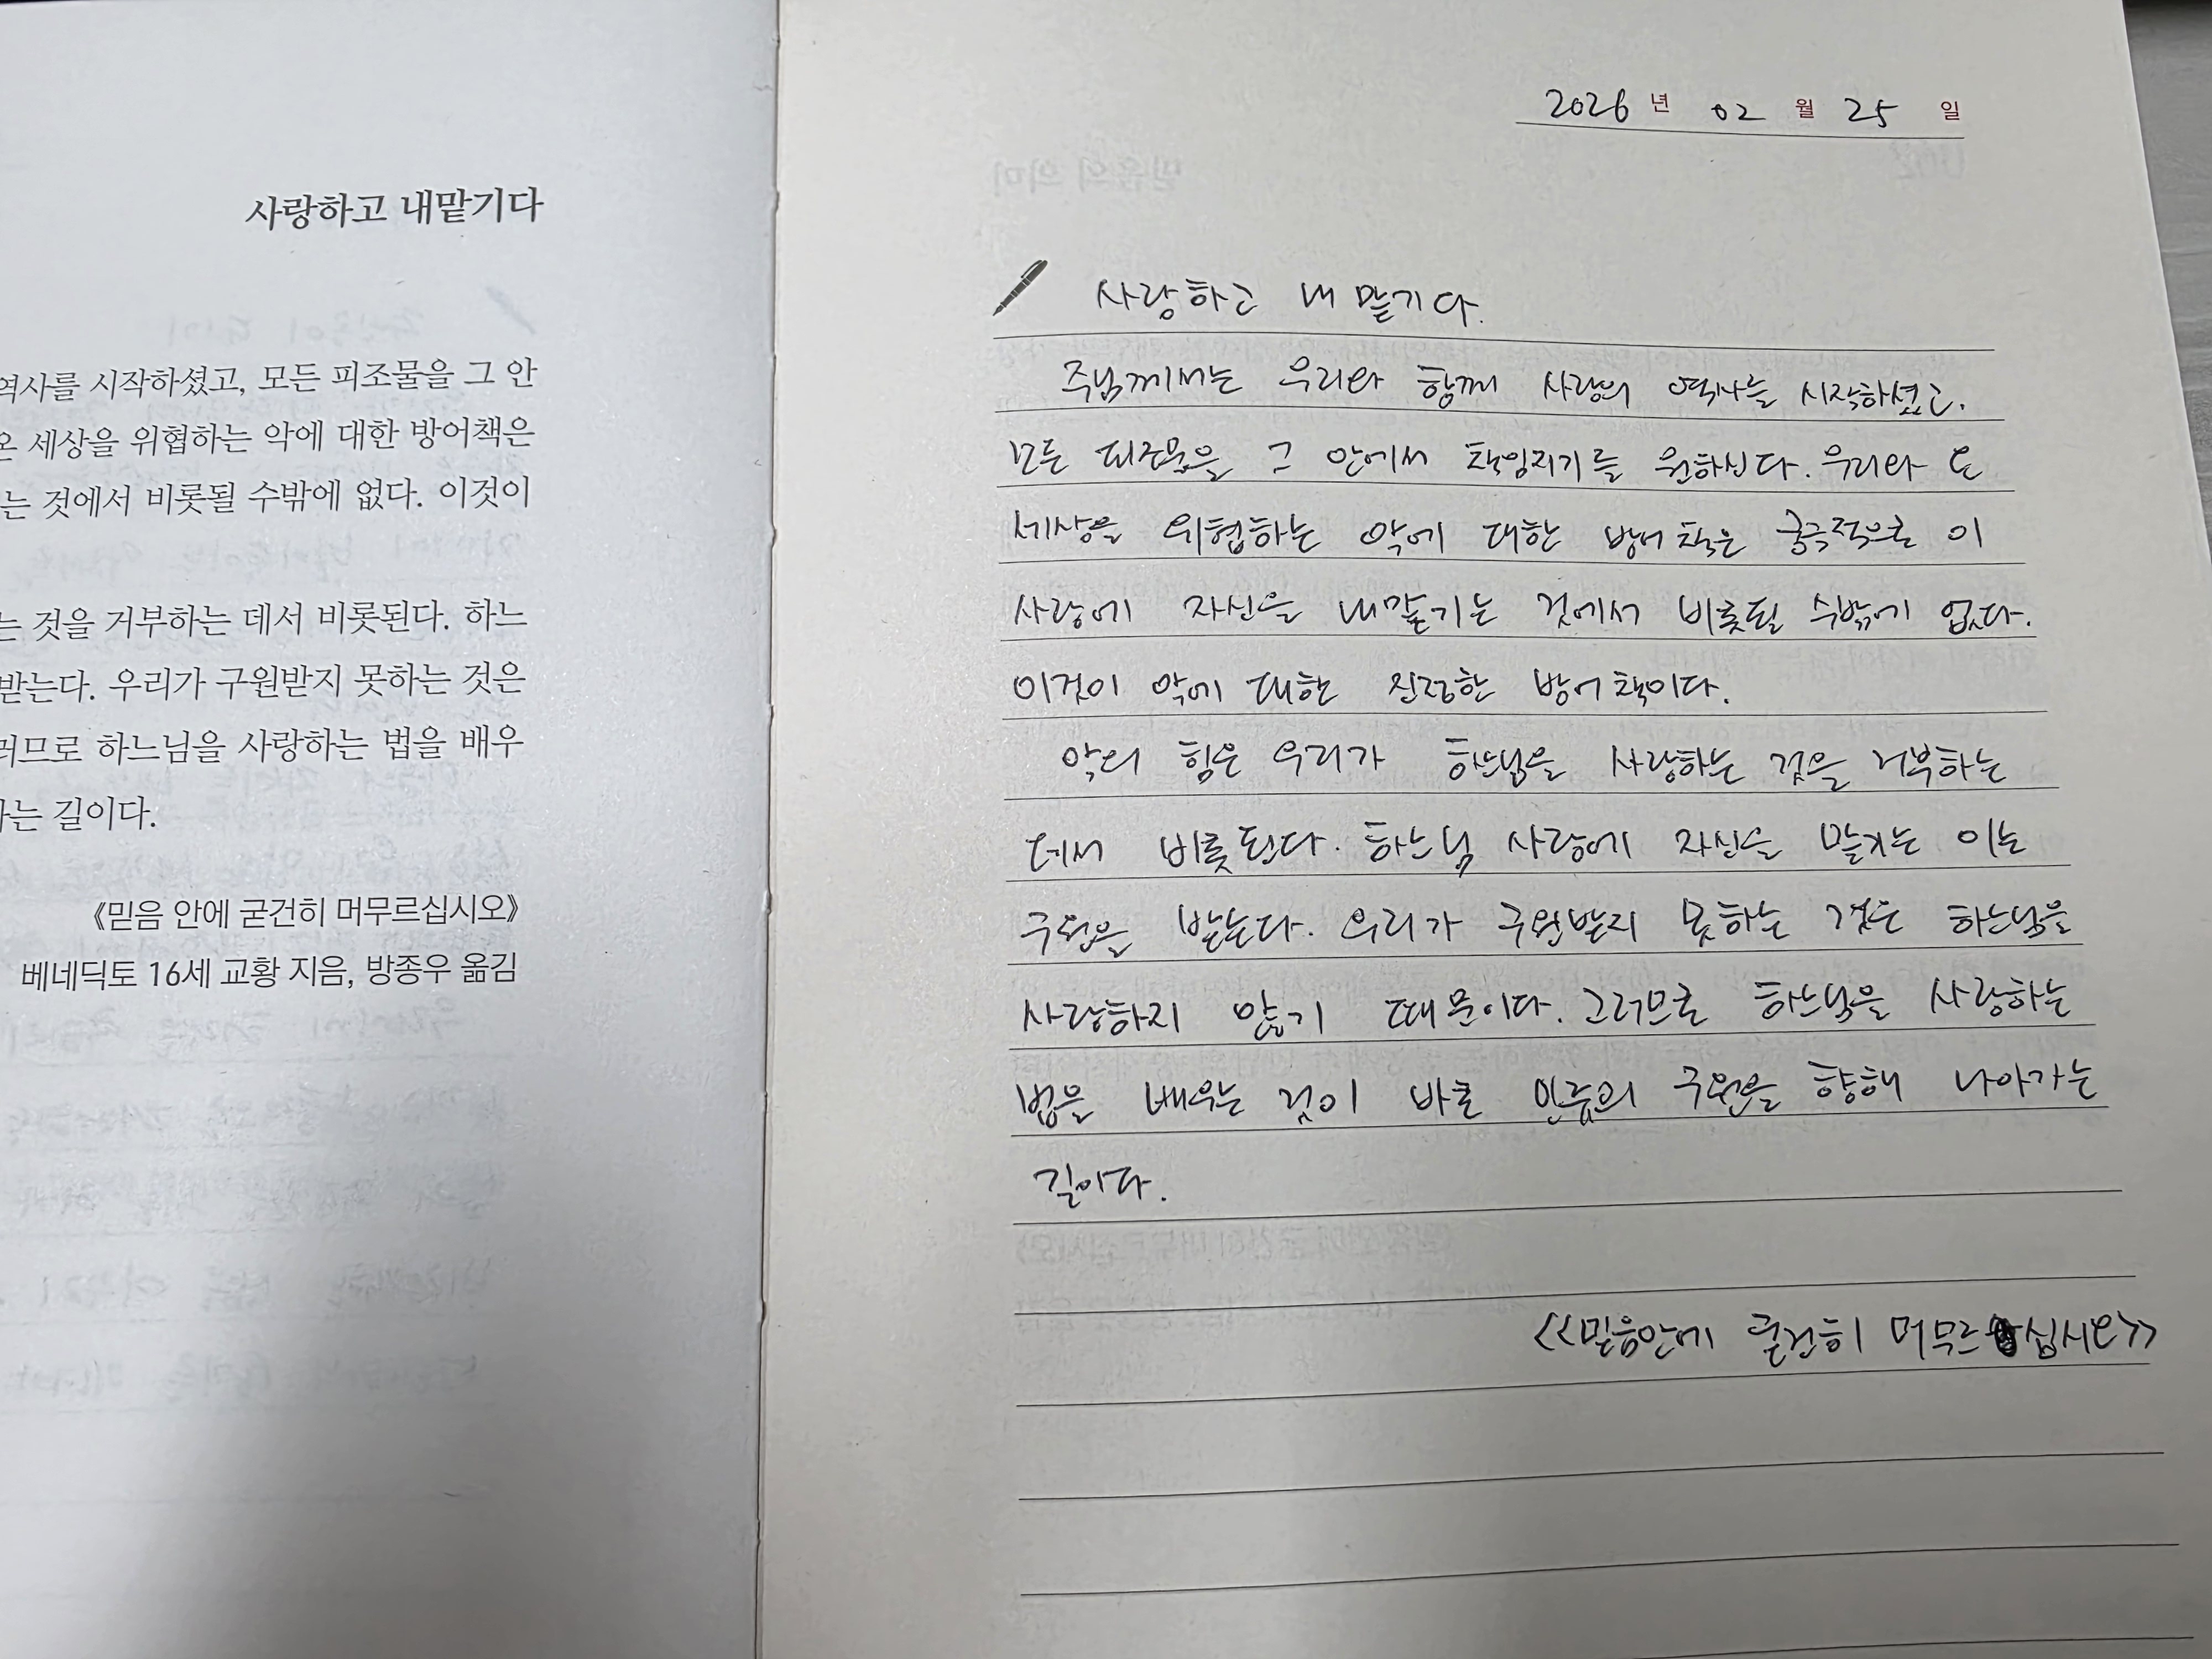 사랑하고 내맡기다
역사를 시작하셨고, 모든 피조물을 그 안
온 세상을 위협하는 악에 대한 방어책은
는 것에서 비롯될 수밖에 없다. 이것이
는 것을 거부하는 데서 비롯된다. 하느
받는다. 우리가 구원받지 못하는 것은
러므로 하느님을 사랑하는 법을 배우
하는 길이다.
《믿음 안에 굳건히 머무르십시오》
베네딕토 16세 교황 지음, 방종우 옮김
2026 년 02 월 25 일
사랑하고 내맡기다.
주님께서는 우리와 함께 사랑의 역사를 시작하셨고.
모든 피조물을 그 안에서 책임지기를 원하신다. 우리와 온
세상을 위협하는 악에 대한 방어책은 궁극적으로 이
사랑에 자신을 내맡기는 것에서 비롯될 수밖에 없다.
이것이 악에 대한 진정한 방어책이다.
악의 힘은 우리가 하느님을 사랑하는 것을 거부하는
데서 비롯된다. 하느님 사랑에 자신을 맡기는 이는
구원을 받는다. 우리가 구원받지 못하는 것은 하느님을
사랑하지 않기 때문이다. 그러므로 하느님을 사랑하는
법을 배우는 것이 바로 인류의 구원을 향해 나아가는
길이다.
<<믿음안에 굳건히 머무르십시오>>